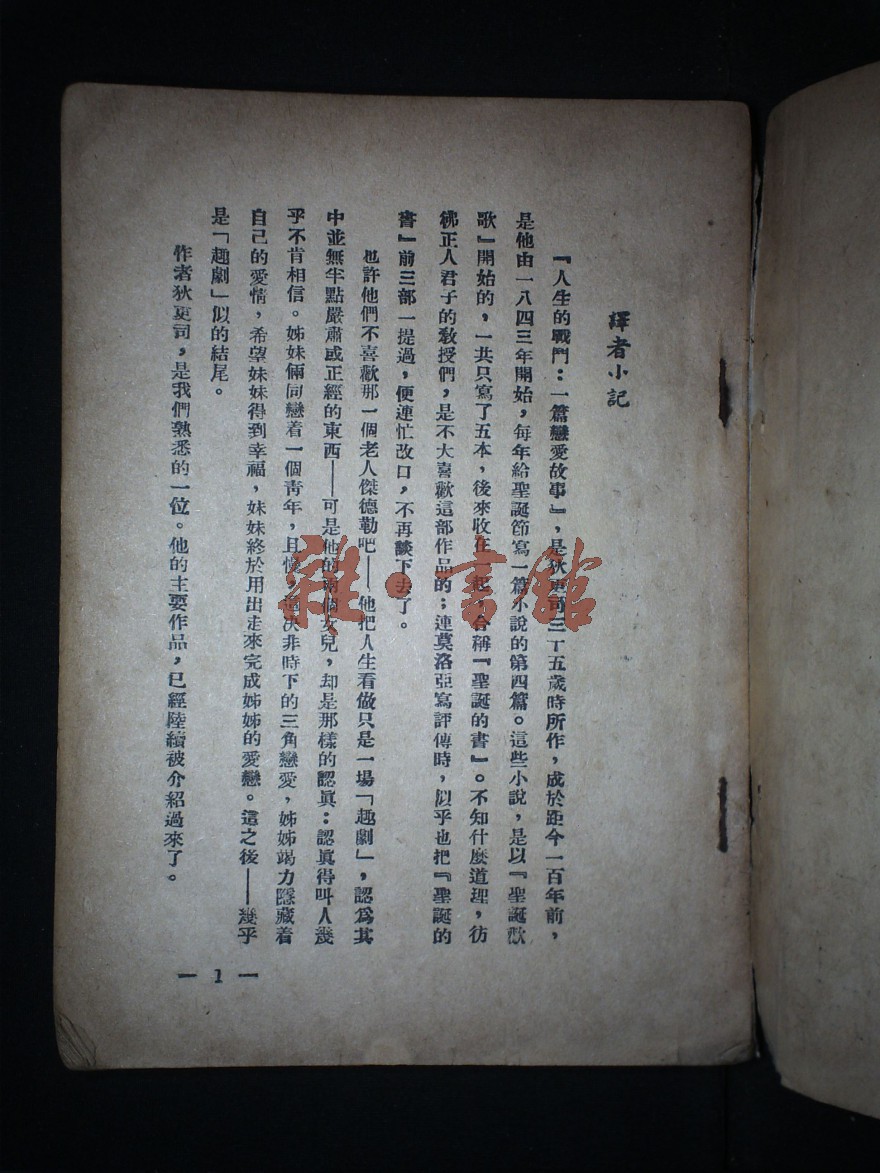 譯者小記
『人生的戰鬥：一篇戀愛故事』，是狄更司三十五歲時所作，成於距今一百年前，
是他由一八四三年開始，每年給聖誕節寫一篇小說的第四篇。這些小說，是以『聖誕歡
歌』開始的，一共只寫了五本，後來收在一起，合稱『聖誕的書』。不知什麼道理，彷
彿正人君子的敎授們，是不大喜歡這部作品的；連莫洛亞寫評傳時，似乎也把『聖誕的
書』前三部一提過，便連忙改口，不再談下去了。
也許他們不喜歡那一個老人傑德勒吧——他把人生看做只是一場「趣劇」，認爲其
中並無半點嚴肅或正經的東西——可是他的兩個女兒，却是那樣的認眞：認眞得叫人幾
乎不肯相信。姊妹倆同戀着一個靑年，且慢，這决非時下的三角戀愛，姊姊竭力隱藏着
自己的愛情，希望妹妹得到幸福，妹妹終於用出走來完成姊姊的愛戀。這之後——幾乎
是「趣劇」似的結尾。
作者狄更司，是我們熟悉的一位。他的主要作品，已經陸續被介紹過來了。
— 1 —
雜·書館